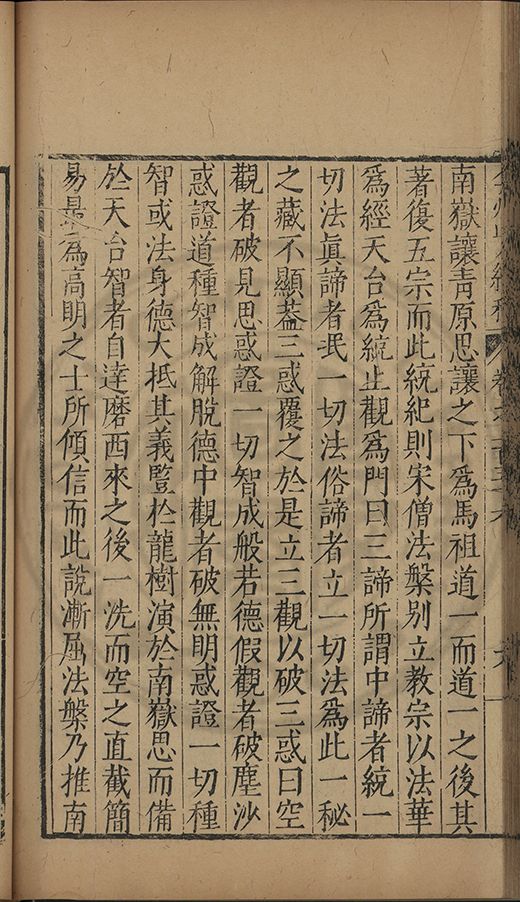 南嶽讓靑原思讓之下爲馬祖道一而道一之後其
著復五宗而此統紀則宋僧法槃別立教宗以法華
爲經天台爲統止觀爲門曰三諦所謂中諦者統一
切法眞諦者泯一切法俗諦者立一切法爲此一秘
之藏不顯葢三惑覆之於是立三觀以破三惑曰空
觀者破見思惑證一切智成般若德假觀者破塵沙
惑證道種智成解脫德中觀者破無明惑證一切種
智或法身德大抵其義暨於龍樹演於南嶽思而備
於天台智者自達磨西來之後一洗而空之直截簡
易最爲高明之士所傾信而此說漸屈法槃乃推南